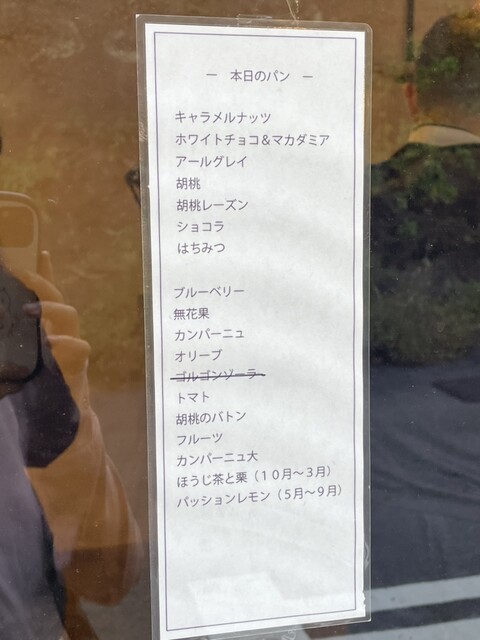 ― 本日のパン ―
キャラメルナッツ
ホワイトチョコ＆マカダミア
アールグレイ
胡桃
胡桃レーズン
ショコラ
はちみつ
ブルーベリー
無花果
カンパーニュ
オリーブ
ゴルゴンゾーラ
トマト
胡桃のバトン
フルーツ
カンパーニュ大
ほうじ茶と栗（１０月～３月）
パッションレモン（５月～９月）